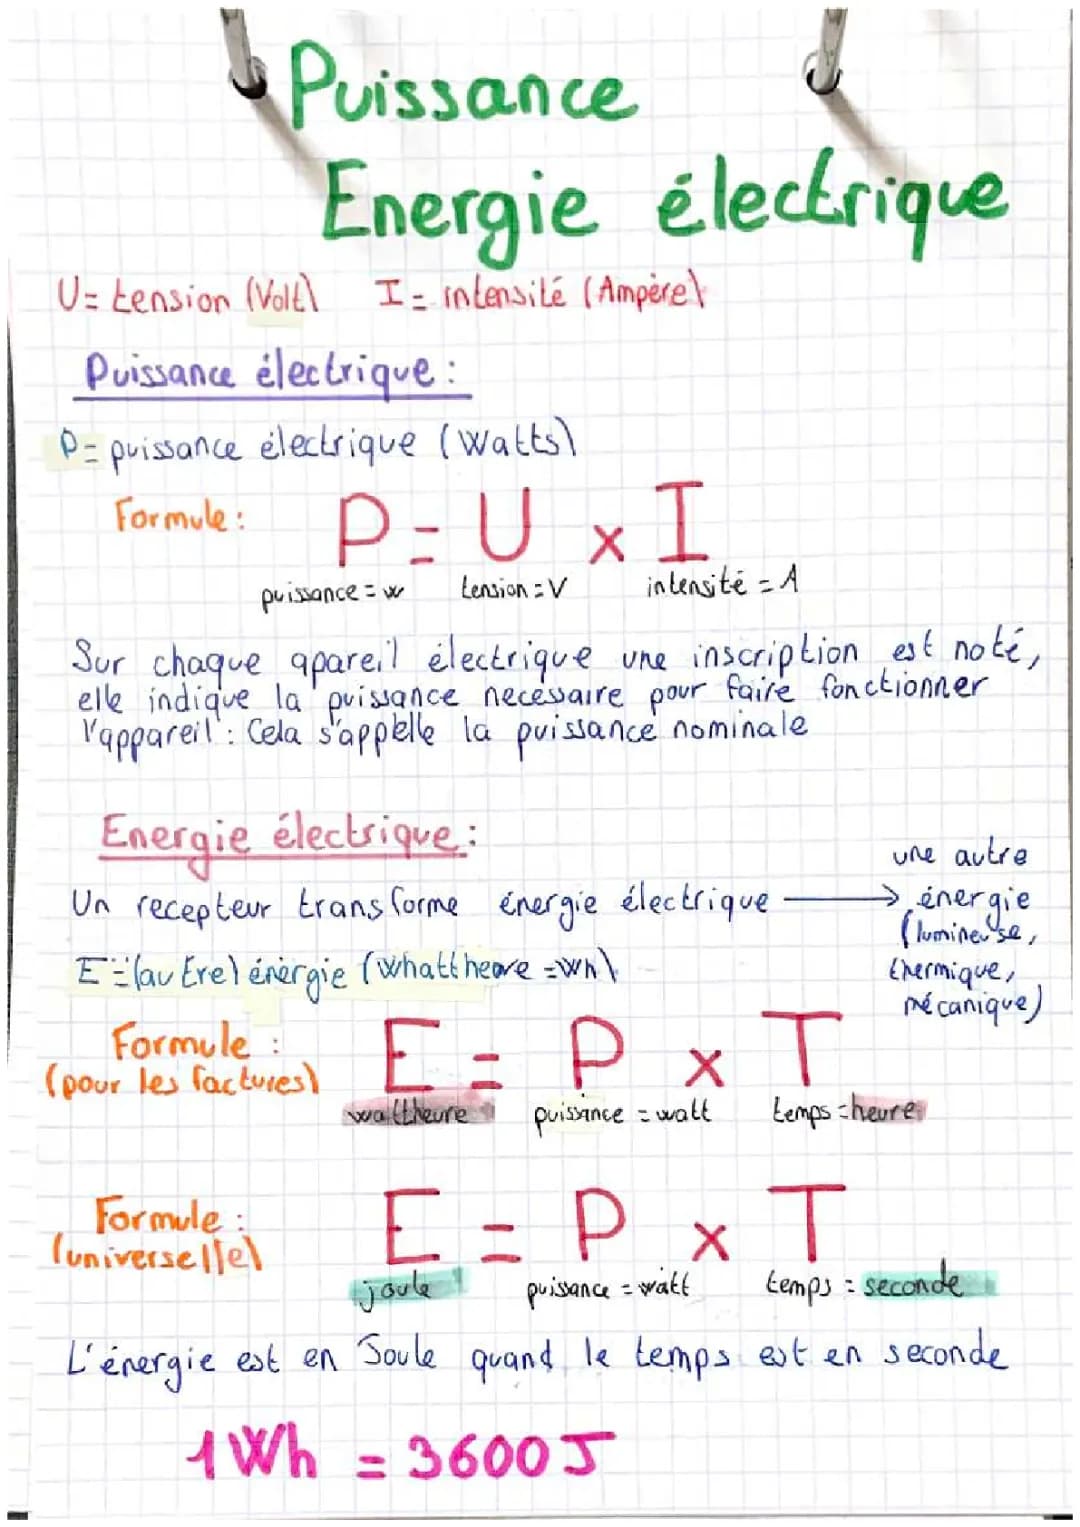 Puissance
Energie électrique
U= tension (Volt) I = intensité (Ampère)
Puissance électrique :
P= puissance électrique (Watts)
Formule : P = U x I
puissance = w tension = V intensité = A
Sur chaque apareil électrique une inscription est noté,
elle indique la puissance necessaire pour faire fonctionner
l'appareil : Cela s'appelle la puissance nominale
Energie électrique :
Un recepteur transforme énergie électrique → une autre
énergie
(lumineuse,
thermique,
mécanique)
E = (autre) énergie (Whattheure = Wh)
Formule :
(pour les factures) E = P x T
wattheure puissance = watt temps = heure
Formule :
(universelle) E = P x T
joule puissance = watt temps = seconde
L'énergie est en Joule quand le temps est en seconde
1 Wh = 3600 J